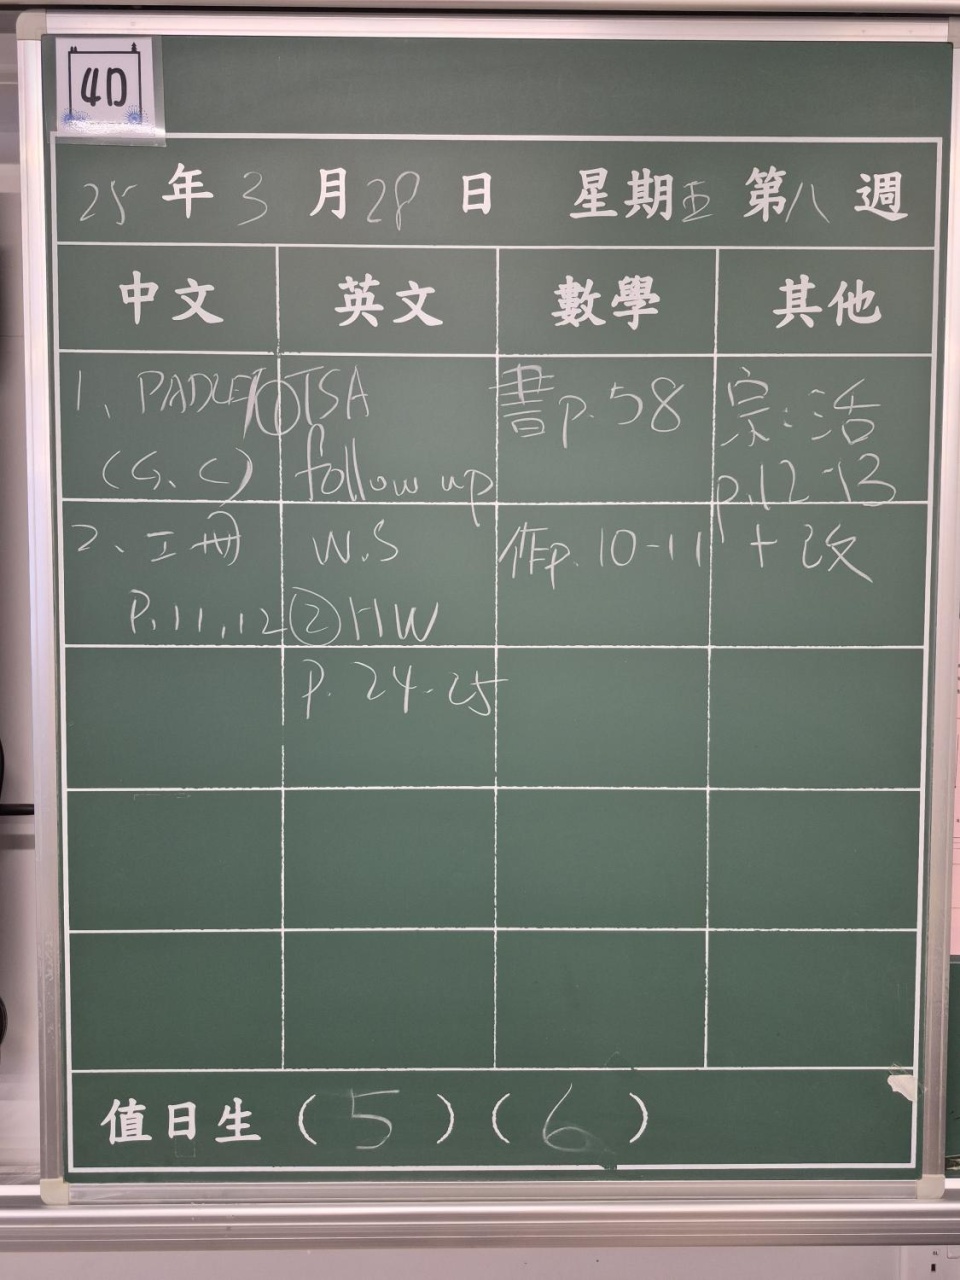 4D
25年3月28日 星期五 第八週
中文 英文 數學 其他
1、PADLET
(G.C)
2、工冊
P.11,12
① TSA
follow up
W.S
② HW
P. 24-25
書p.58
作p.10-11
宗:活
p.12-13
+改
值日生(5)(6)